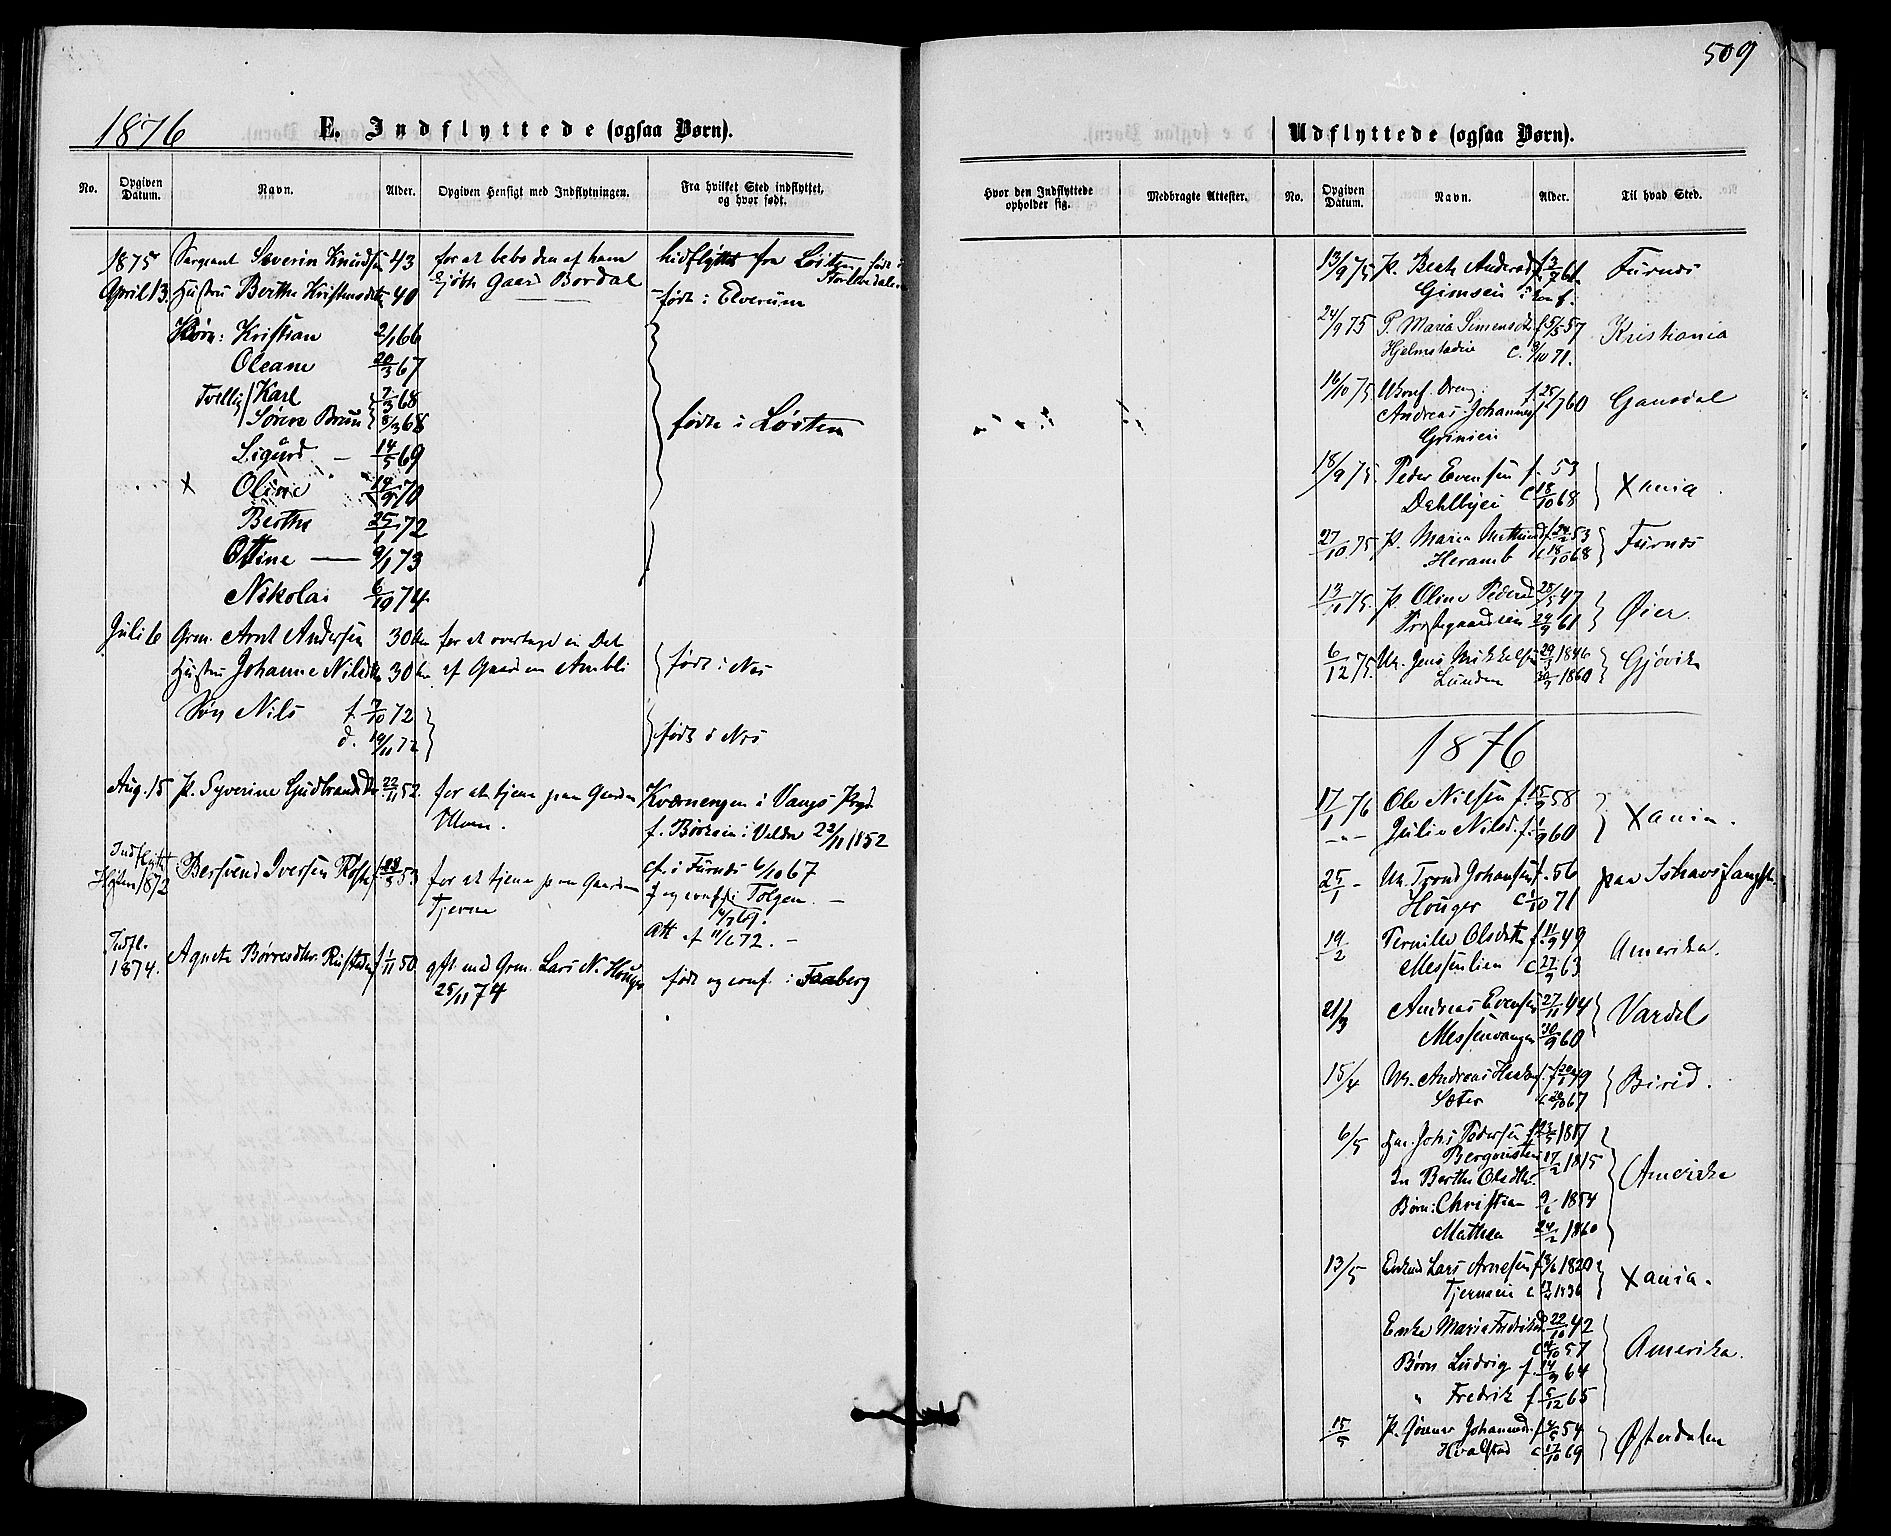 509
1876
E. Indflyttede (ogsaa Børn).
No. Opgiven Datum. Navn. Alder. Opgiven Hensigt med Indflytningen. Fra hvilket Sted indflyttet, og hvor født.
1875 Sergeant Severin Knudsen 43 for at bebo den af ham hidflyttet fra Löiten, født i
April 13. Hustru Berthe Kristensdtr 40 kjøbte Gaard Bordal født i Elverum
Børn: Kristian 2/1 66
Oleane 20/3 67
Tvillig Karl 7/3 68
Sørine 8/3 68
født i Löiten
Sigurd – 14/5 69
X Oline 14/9 70
Berthe 25/1 72
Ottine — 9/1 73
Nikolai 6/10 74
Juli 6 Grm. Arnt Andersen 30 for at overtage en Del
Hustru Johanne Nilsdtr 30 af Gaarden Ambli født i Nes
Søn Nils f. 7/10 72
d. 19/11 72 født i Nes
Aug. 15 P. Syverine Gudbrandsdtr 22/11 52. for at tjene paa Gaarden Kværnengen i Vangs Prgd.
Ulven. f. i Veldre 22/11 1852
Indflytt Høsten 1872 Bersvend Iversen f 53 for at tjene paa Gaarden
Tjerne
cf. i Furnes 6/10 67
f og conf. i Tolgen. –
Att af 11/6 72. –
Indfl. 1874. Agnete Børresdtr. Rustaden f 1/11 50 gift med Grm. Lars N. Houger født og conf. i Faaberg
25/11 74
Udflyttede (ogsaa Børn).
Hvor den Indflyttede opholder sig. Medbragte Attester. No. Opgiven Datum. Navn. Alder. Til hvad Sted.
13/9 75 P. Berte Andersd 61 Furnes
Gimsei
24/9 75 P. Maria Simensdtr f 5/5 57 Kristiania
Hjelmstadeie c. 8/10 71.
16/10 75 Ukonf. Dreng f. 60 Gausdal
Andreas Johannes
Griniei
18/9 75. Peder Evensen f. 53
Dahlbyei c 18/10 68 Xania.
27/10 75 P. Maria f. 24/2 53
Heramb c 18/10 68 Furnes
13/11 75. P. Oline Pedersd 25/5 47
Prestegaardseien 29/9 61 Øier.
6/12 75. Uk. Jens Mikkelsen 29/1 1846
Lunden 30/9 1860 Gjøvik
1876
17/1 76 Ole Nilsen f. 15/9 58
– " – Julie Nilsd. f. 60 Xania.
25/1 – Uk. Trond Johansen f. 56 paa Ishavsfangst.
Houger c 1/10 71
19/2 Pernille Olsdtr f. 11/9 49 Amerika.
Messenlien c 27/9 63
21/3 Andreas Evensen 27/11 44
Messenvangen 30/9 60 Vardal
15/4 Uk. Andreas f 49
Sæter c 67 Birid.
6/5 Johs Pedersen f 23/5 1817
17/2 1815
Berthe Olsdtr.
Børn: Christian 9/6 1854
Mathea 24/2 1860
Amerika
13/5 Enkem Lars Arnesen f 1820
Tjernsei c 1836 Xania.
Enke Maria Fredriksd 22/10 42
c 4/10 57
Børn Ludvig f. 14/9 64
" Fredrik f 5/12 65
Amerika.
15/5 P. Johannesd. f 4/5 54
Hvalstad c 17/10 69 Østerdalen